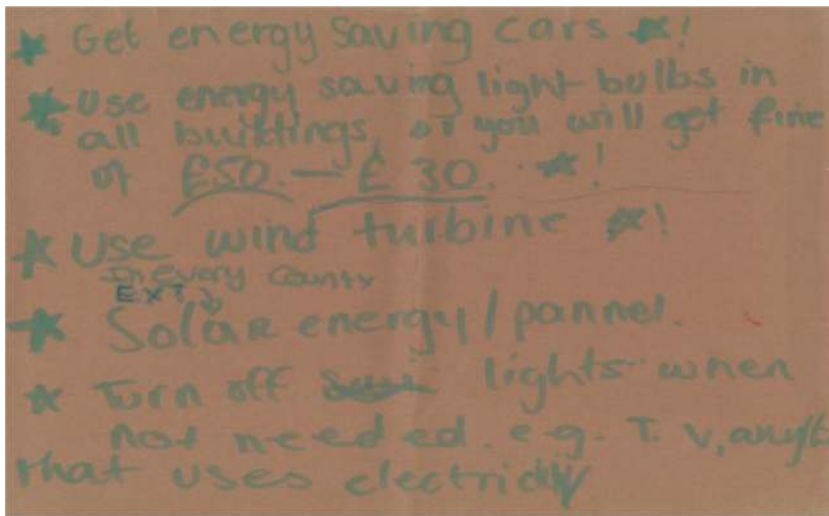 Get energy saving cars !
Use energy saving light bulbs in
all buildings, or you will get fine
of £50.—£30. !
Use wind turbine !
In every County
EXT
Solar energy/pannel.
Turn off lights when
not needed. e.g. T.V,
that uses electricity